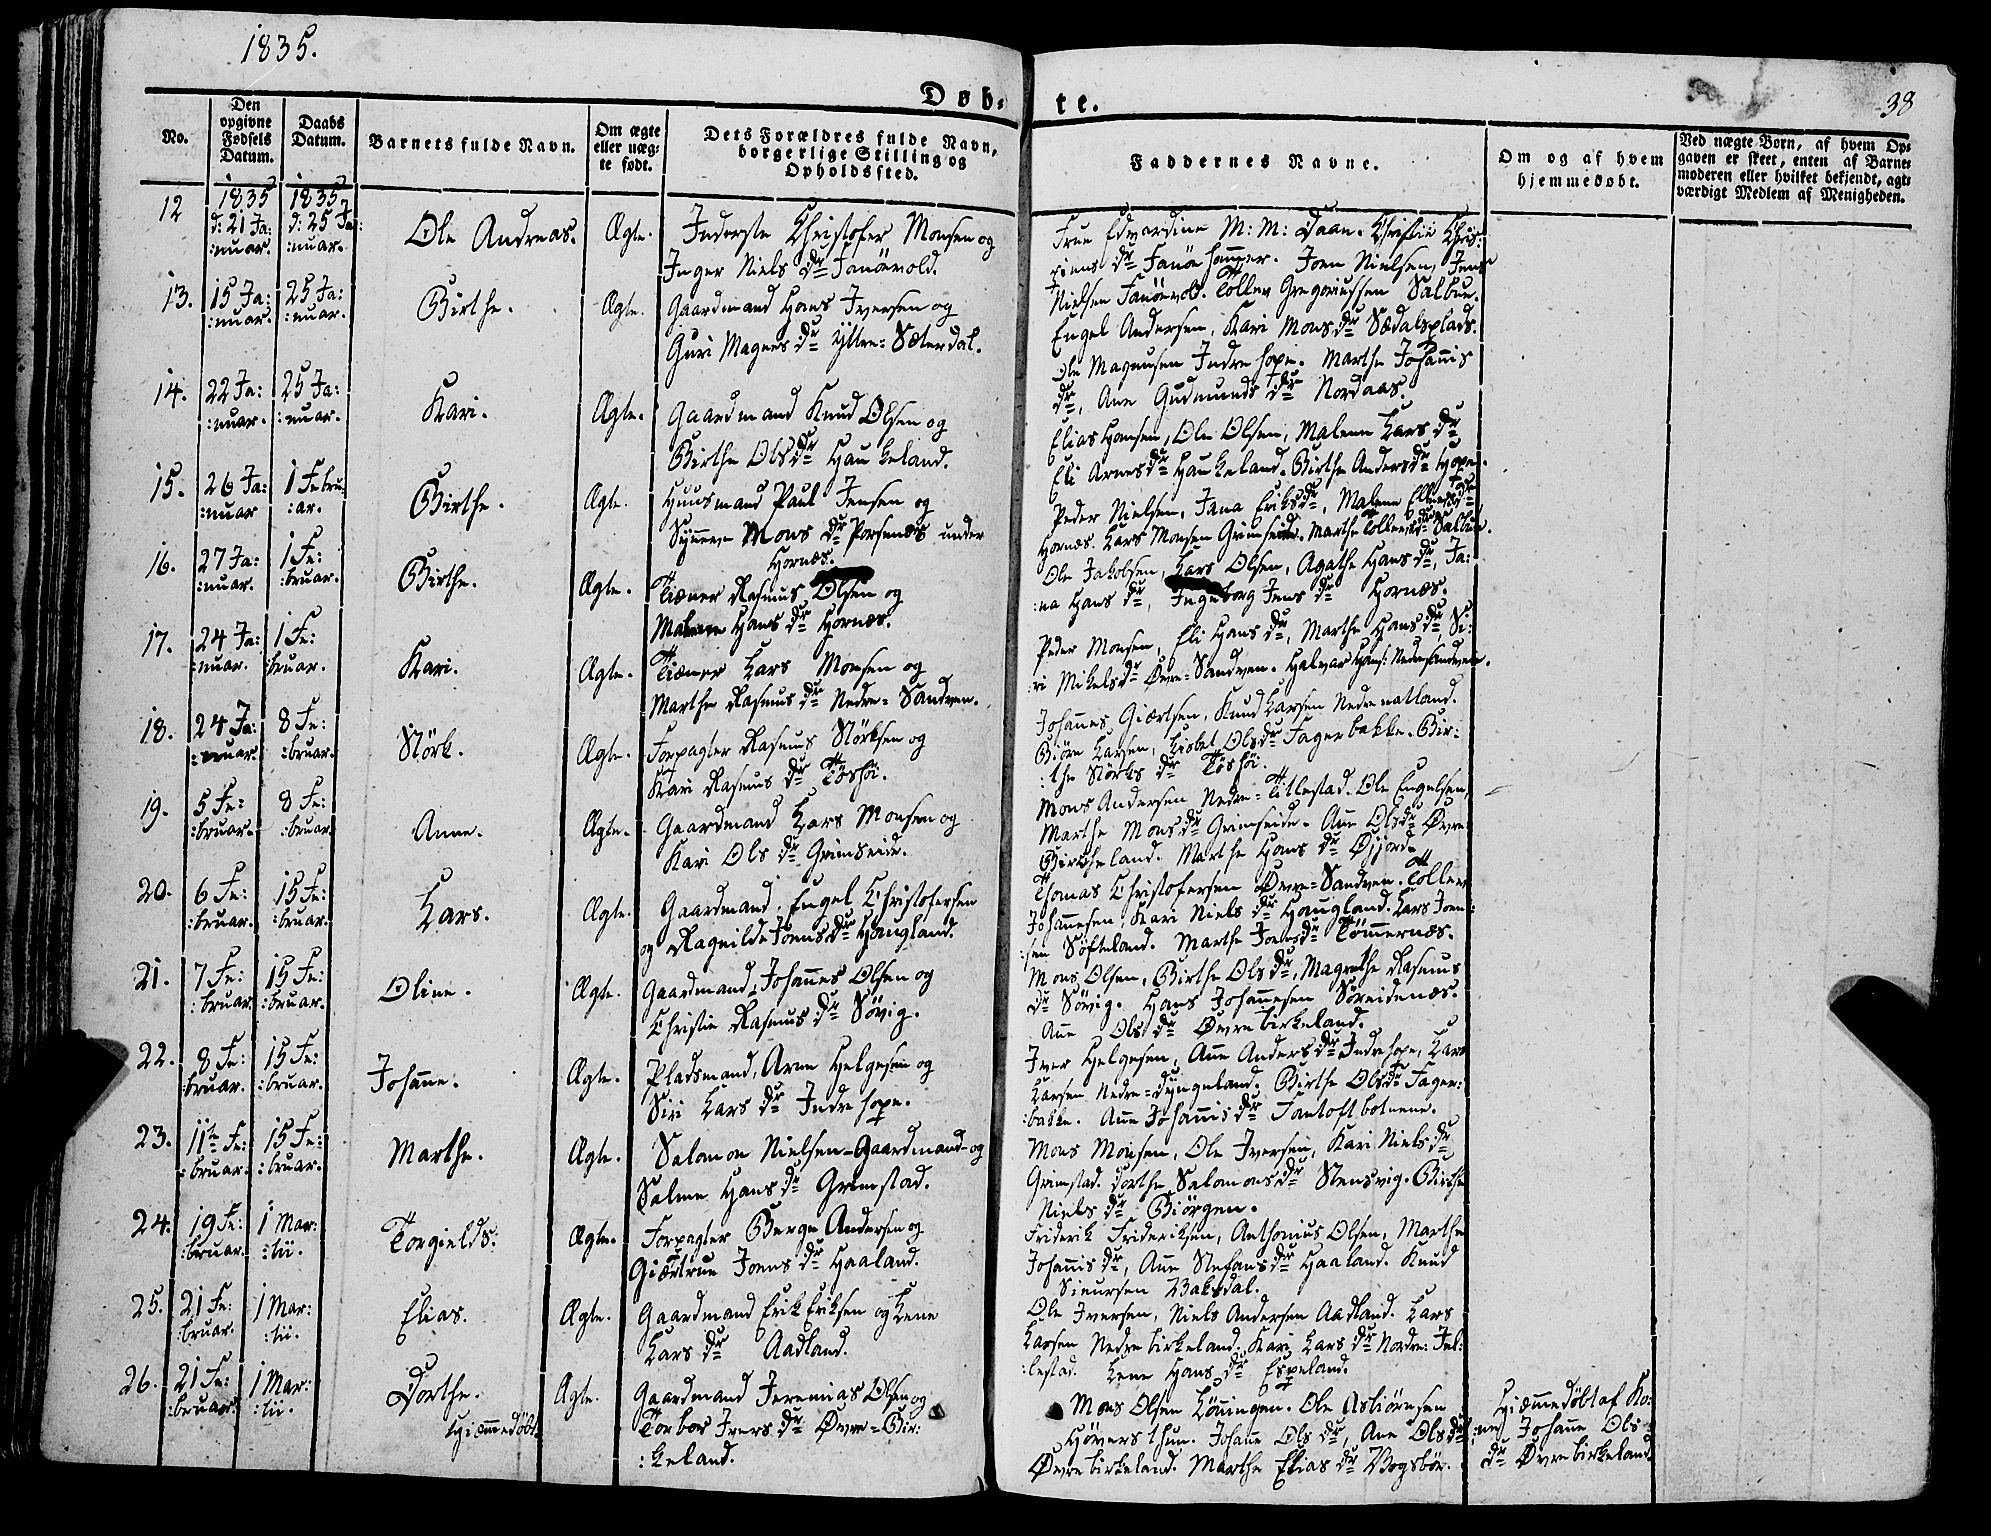 1835.
Døb-
te.
38
No.
Den opgivne Fødsels Datum.
Daabs Datum.
Barnets fulde Navn.
Om ægte eller uægte født.
Dets Forældres fulde Navn, borgerlige Stilling og Opholdssted.
Faddernes Navne.
Om og af hvem hjemmedøbt.
Ved uægte Børn, af hvem Opgaven er skeet, enten af Barnemoderen eller hvilket bekjendt, agtværdigt Medlem af Menigheden.
12 1835 d: 21 Ja: :nuar. 1835 d: 25 Ja: :nuar. Ole Andreas. Ægte. Inderste Christofer Monsen og
Inger Niels dr Fanøevold.
Frue Edvardine M: M: Daae. Christie Chris:
:tens dr Fanøehammer. Joen Nielsen, Jens
Nielsen Fanøevold. Tollev Gregoriussen Salbue.
13. 15 Ja: :nuar. 25 Ja: :nuar. Birthe. Ægte. Gaardmand Hans Iversen og
Guri Magnes dr Yttre-Sæterdal.
Engel Andersen, Kari Mons dr Sædalsplads.
Ole Magnusen Indrehope. Marthe Johannis
dr, Ane Gudmunds dr Nordaas.
14. 22 Ja: :nuar. 25 Ja: :nuar. Kari. Ægte. Gaardmand Knud Olsen og
Birthe Ols dr Haukeland.
Elias Hansen, Ole Olsen, Malene Lars dr
Eli Arnes dr Haukeland. Birthe Anders dr Hope.
15. 26 Ja: :nuar 1 Febru: :ar. Birthe. Ægte. Huusmand Paul Jensen og
Synneve Mons dr Porsenæs under
Hornæs.
Peder Nielsen, Jana Eriks dr, Malene Ellings dr
Hornæs. Lars Monsen Grimseide. Marthe Tollevs dr Salbue.
16. 27 Ja: :nuar. 1 Fe: :bruar. Birthe. Ægte. Tiæner Rasmus Olsen og
Malene Hans dr Hornæs.
Ole Jakobsen, Lars Olsen, Agathe Hans dr, Ja:
:na Hans dr, Ingeborg Jens dr Hornæs.
17. 24 Ja: :nuar. 1 Fe: :bruar. Kari. Ægte. Tiæner Lars Monsen og
Marthe Rasmus dr Nedre-Sandven.
Peder Monsen, Eli Hans dr, Marthe Hans dr, Si:
:ri Mikels dr Øvre-Sandven. Halvar Hans: Nedresandven.
18. 24 Ja: :nuar. 8 Fe: :bruar. Størk. Ægte. Forpagter Rasmus Størksen og
Kari Rasmus dr Tøshøi.
Johannes Giærtsen, Knud Larsen Nedrenatland.
Biørn Larsen, Lisbet Ols dr Fagerbakke. Bir:
:the Størks dr Tøshøi.
19. 5 Fe: :bruar. 8 Fe: :bruar Anne. Ægte. Gaardmand Lars Monsen og
Kari Ols dr Grimseide.
Mons Andersen Nedre-Titlestad. Ole Engelsen,
Marthe Mons dr Grimseide. Ane Ols dr Øvre
Birkeland. Marthe Hans dr Øijord.
20. 6 Fe: :bruar. 15 Fe: :bruar. Lars. Ægte. Gaardmand. Engel Christofersen
og Ragnilde Joens dr Haugland.
Thomas Christofersen Øvre-Sandven. Tollev
Johannesen, Kari Niels dr Haugland. Lars Joen:
:sen Søfteland. Marthe Joens dr Tømmernæs.
21. 7 Fe: :bruar 15 Fe: :bruar. Oline. Ægte. Gaardmand, Johannes Olsen og
Christie Rasmus dr Søvig.
Mons Olsen, Birthe Ols dr, Magrethe Rasmus
dr Søvig. Hans Johannesen Søreidenæs.
Ane Ols dr Øvrebirkeland.
22. 8 Fe: :bruar. 15 Fe: :bruar. Johanne. Ægte. Pladsmand, Arne Helgesen og
Siri Lars dr Indrehope.
Iver Helgesen, Ane Anders dr Indrehope, Lars
Larsen Nedre-Dyngeland. Birthe Ols dr Fager:
:bakke. Ane Johannis dr Fantoftbotnene.
23. 11te Fe: :bruar. 15 Fe: :bruar. Marthe. Ægte. Salomon Nielsen-Gaardmand-og
Salene Hans dr Grimstad.
Mons Monsen, Ole Iversen, Kari Niels dr
Grimstad. Dorthe Salomons dr Stensvig. Birthe
Niels dr Biørgen.
24. 19 Fe: :bruar. 1 Mar: :tii. Torgields: Ægte. Forpagter Berge Andersen og
Giærtrue Joens dr Haaland.
Friderik Frideriksen, Anthonius Olsen, Marthe
Johannis dr, Ane Stefans dr Haaland. Knud
Siversen Bakedal.
25. 21 Fe: :bruar. 1 Mar: :tii. Elias. Ægte. Gaardmand Erik Eriksen og Lene
Lars dr Aadland.
Ole Iversen, Niels Andersen Aadland. Lars
Larsen Nedrebirkeland. Kari Lars dr Nordre-
:lestad. Lene Hans dr Espeland.
26. 21 Fe: :bruar. 1 Mar: :tii. Dorthe. Ægte. Gaardmand Jeremias Olsen og
Hjemmedøbt.
Torbor Ivers dr Øvre-Bir:
:keland.
Mons Olsen Lønningen. Ole Asbiørnsen
Høversthun. Johanne Ols dr, Ane Ols dr
Øvrebirkeland. Marthe Elias dr Vogsbør.
Hjemmedøbt af Ko:
:nen Johanne Ols
dr Øvrebirkeland.